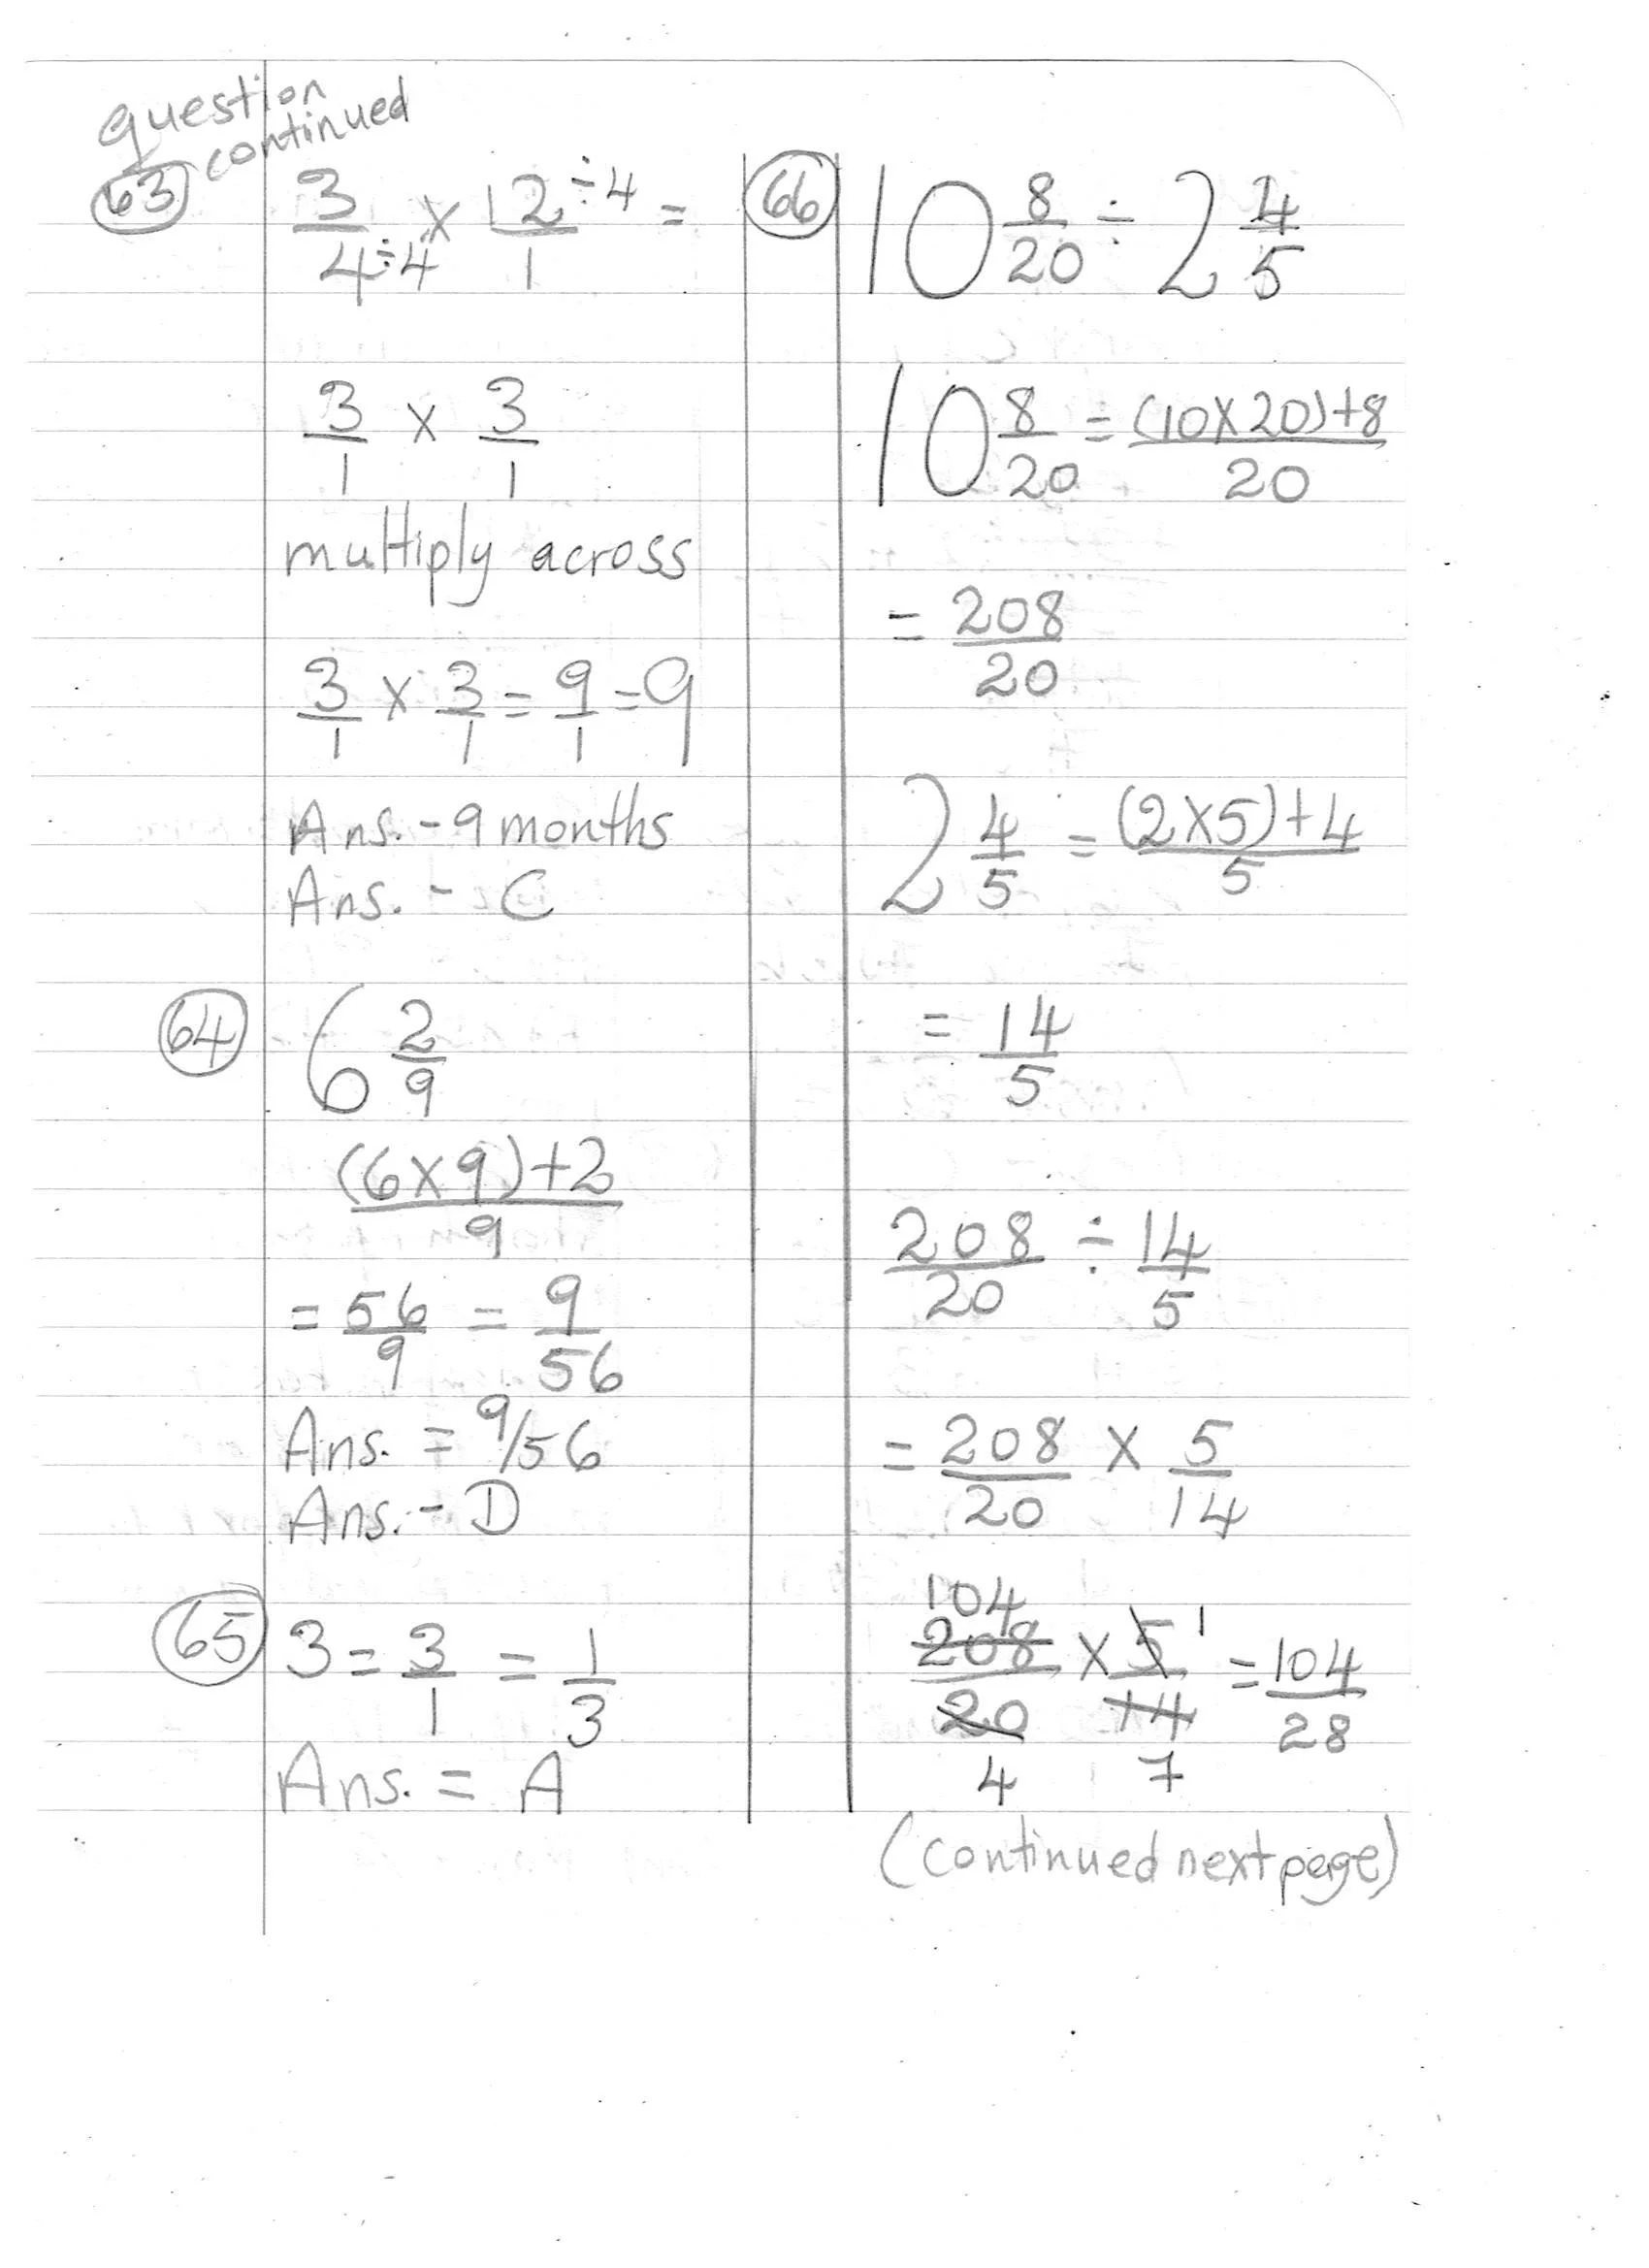 question
continued
63
3/4÷4 × 12÷4/1 =
3/1 × 3/1
multiply across
3/1 × 3/1 = 9/1 = 9
Ans. - 9 months
Ans. - C
64
6 2/9
(6×9)+2/9
= 56/9 = 9/56
Ans. = 9/56
Ans. - D
65
3 = 3/1 = 1/3
Ans. = A
66
10 8/20 ÷ 2 4/5
10 8/20 = (10×20)+8/20
= 208/20
2 4/5 = (2×5)+4/5
= 14/5
208/20 ÷ 14/5
= 208/20 × 5/14
104 1
208/20 × 5/14 = 104/28
4 7
(continued next page)